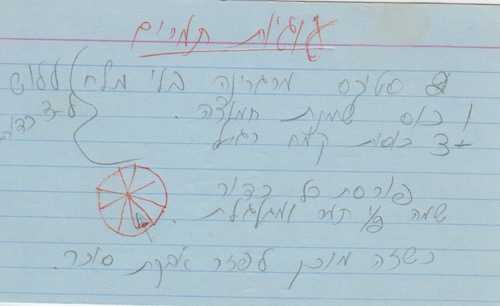 עוגיות תמרים
2 סטיקס מרגרינה בלי מלח
1 כוס שמנת חמוצה.
3 כוסות קמח רגיל
ללוש
ל-3 כדורים
פורסת כל כדור
שמה תמר ומגלגלת.
כשזה מוכן לפזר אבקת סוכר.